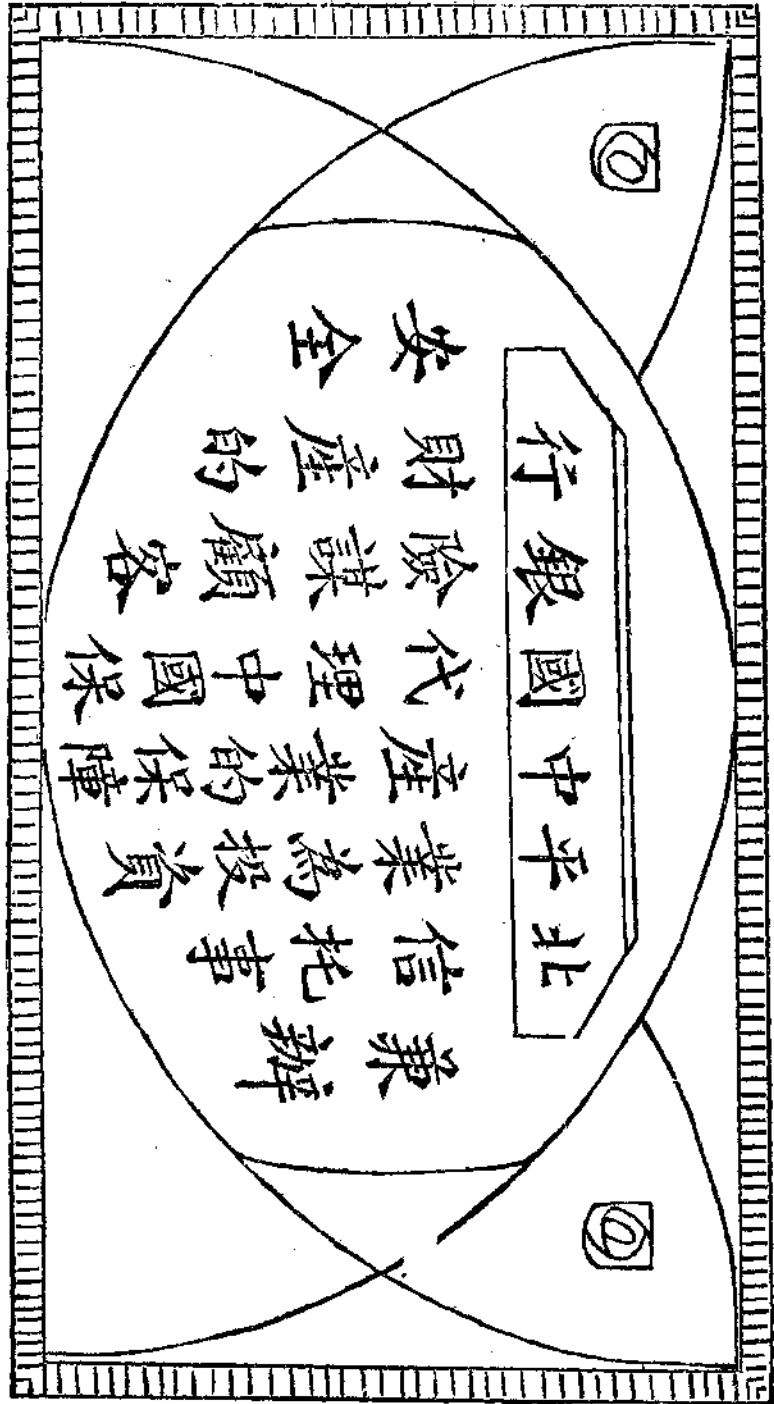 北平中國銀行
兼辦
信托事
業為投資
産業的保障
代理中國保
險謀顧客
財産的
安全